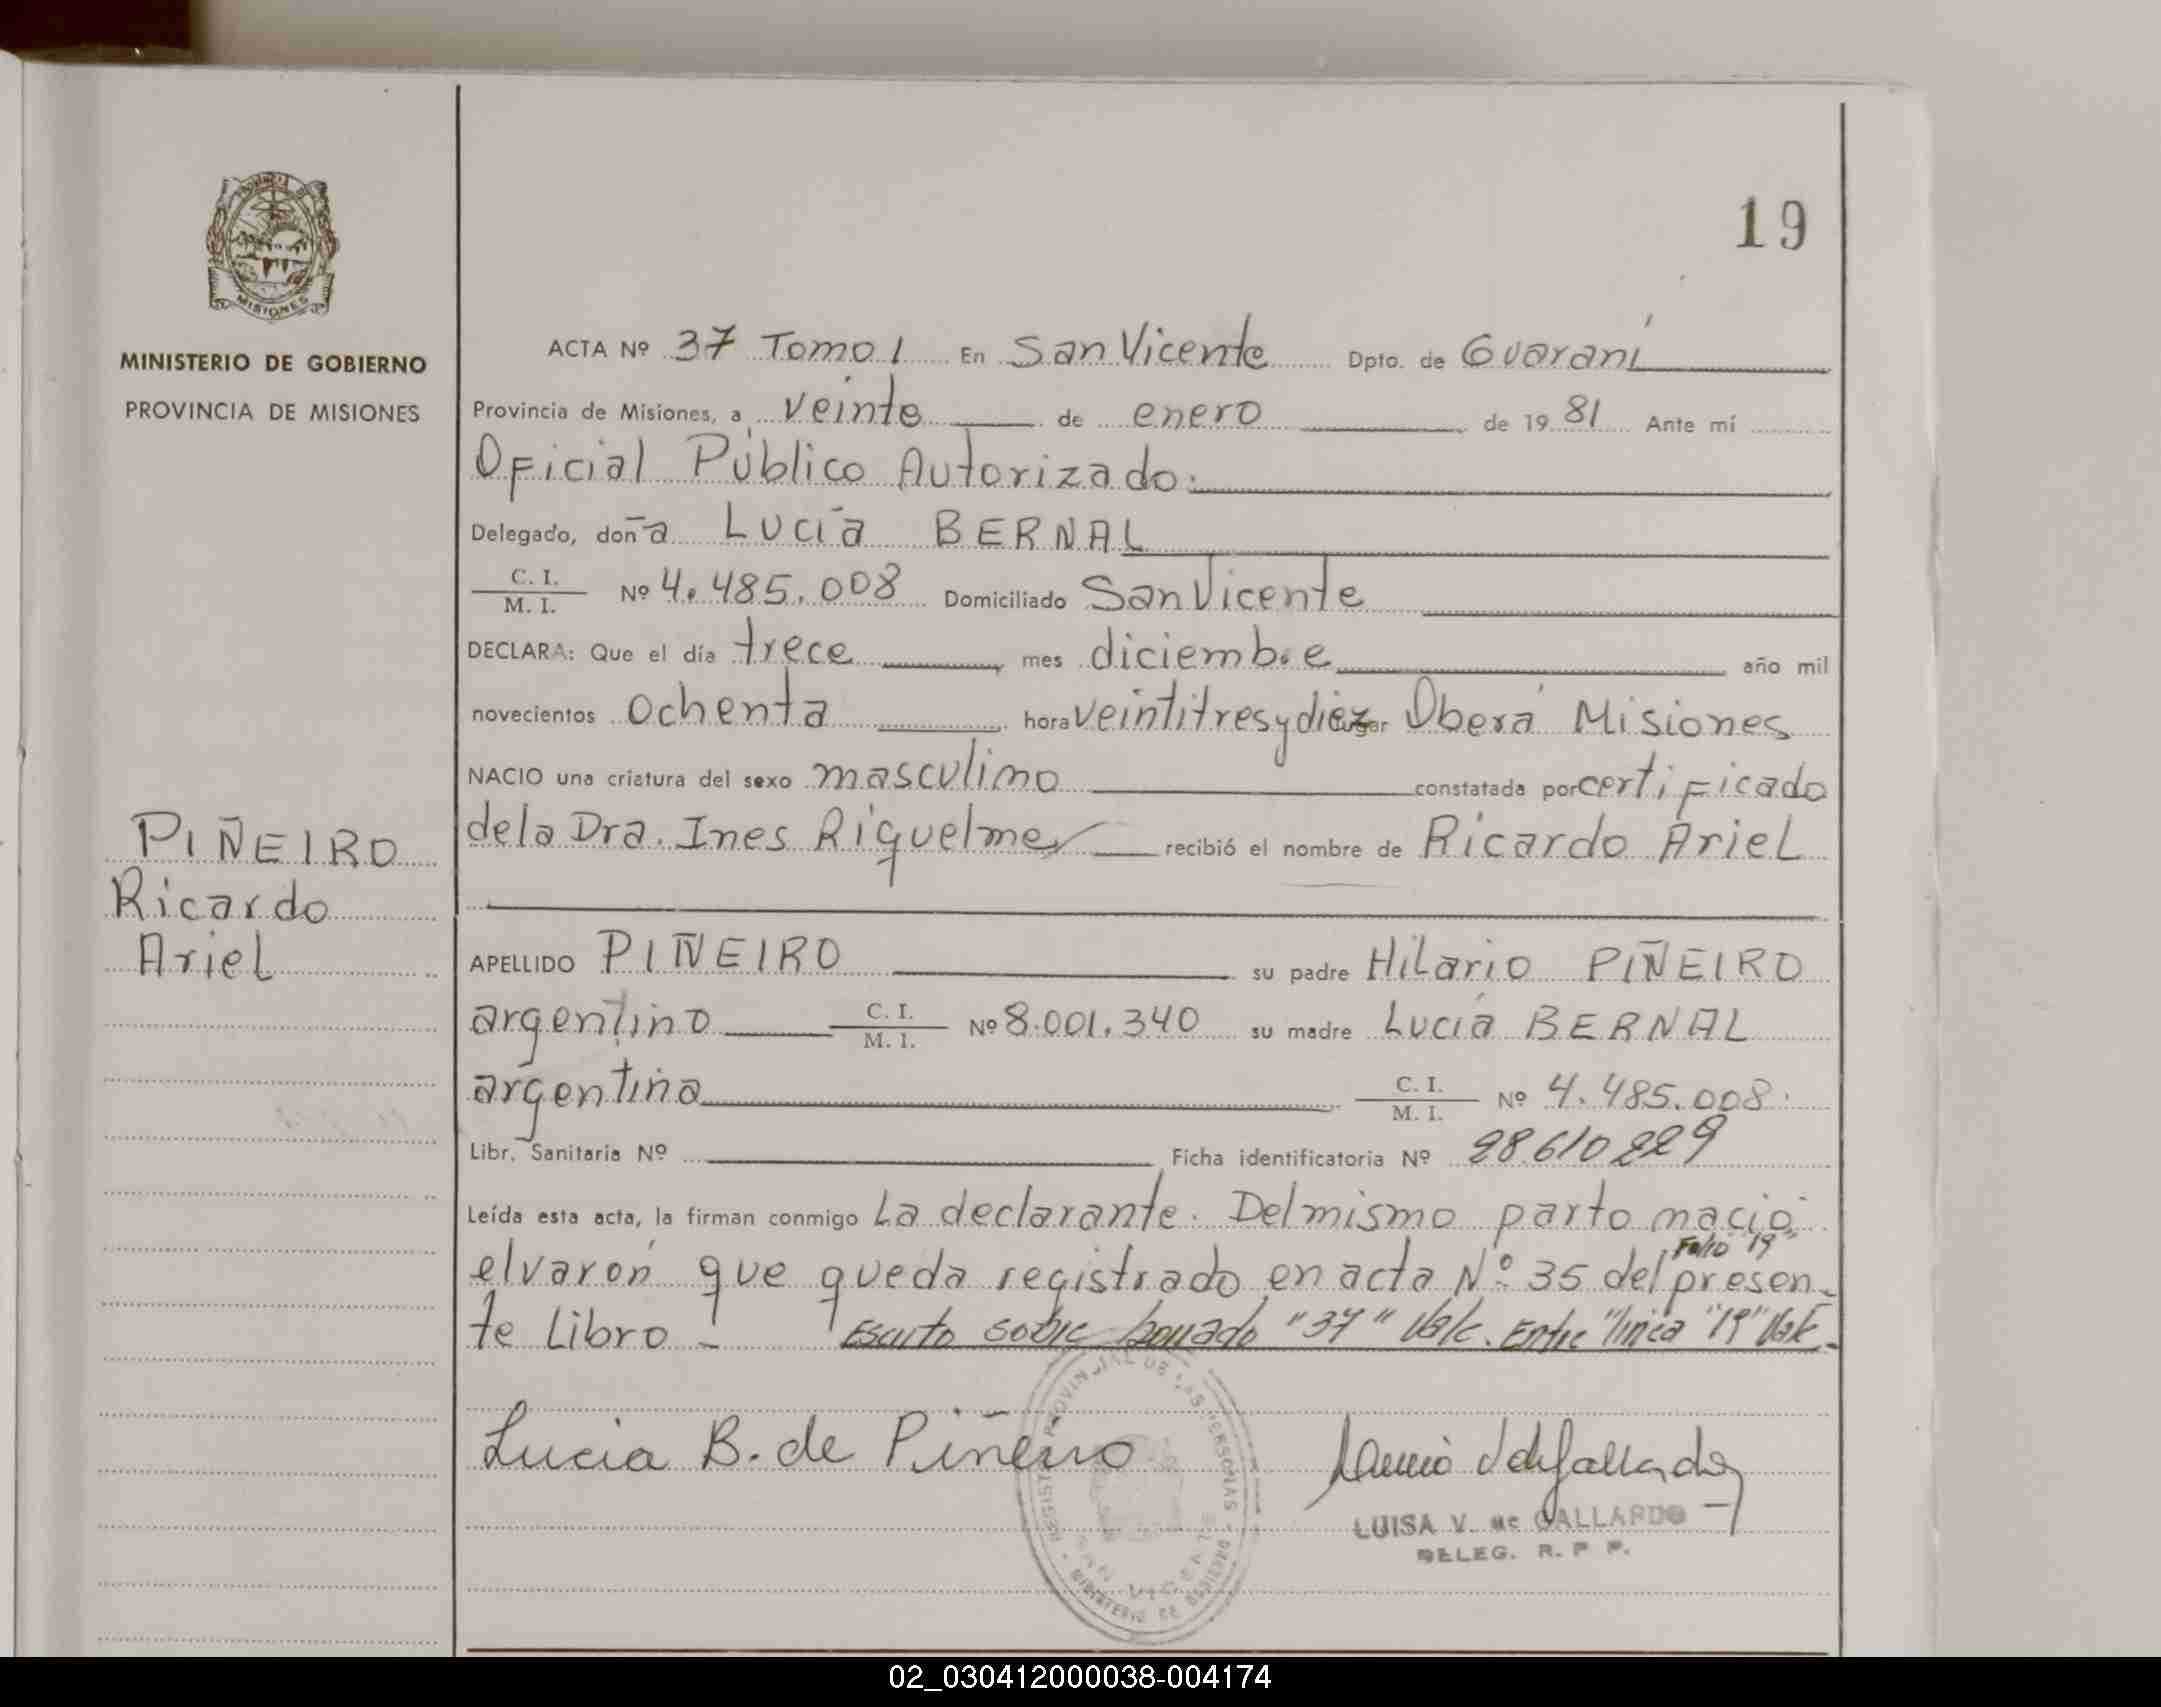 19
MINISTERIO DE GOBIERNO
PROVINCIA DE MISIONES
PIÑEIRO
Ricardo
Ariel
ACTA Nº 37 Tomo I En San Vicente Dpto. de Guaraní
Provincia de Misiones, a veinte de enero de 1981 Ante mí
Oficial Público Autorizado.
Delegado, doña Lucía BERNAL
C. I.
M. I. Nº 4.485.008 Domiciliado San Vicente
DECLARA: Que el día trece mes diciembre año mil
novecientos ochenta hora veintitres y diez lugar Oberá Misiones
NACIO una criatura del sexo masculino constatada por certificado
de la Dra. Ines Riquelme recibió el nombre de Ricardo Ariel
APELLIDO PIÑEIRO su padre Hilario PIÑEIRO
argentino C. I. M. I. Nº 8.001.340 su madre Lucía BERNAL
argentina C. I. M. I. Nº 4.485.008.
Libr. Sanitaria Nº Ficha identificatoria Nº 28.610229
Leída esta acta, la firman conmigo La declarante. Del mismo parto nació
Folio "19"
el varón que queda registrado en acta Nº 35 del presen-
te Libro - Escrito sobre borrado "37" Vale. Entre "línea "19" Vale.
Lucia B. de Piñeiro
LUISA V. de GALLARDO
DELEG. R. P. P.
REGISTRO PROVINCIAL DE LAS PERSONAS
MINISTERIO DE GOBIERNO
SAN VICENTE
MISIONES
02_030412000038-004174